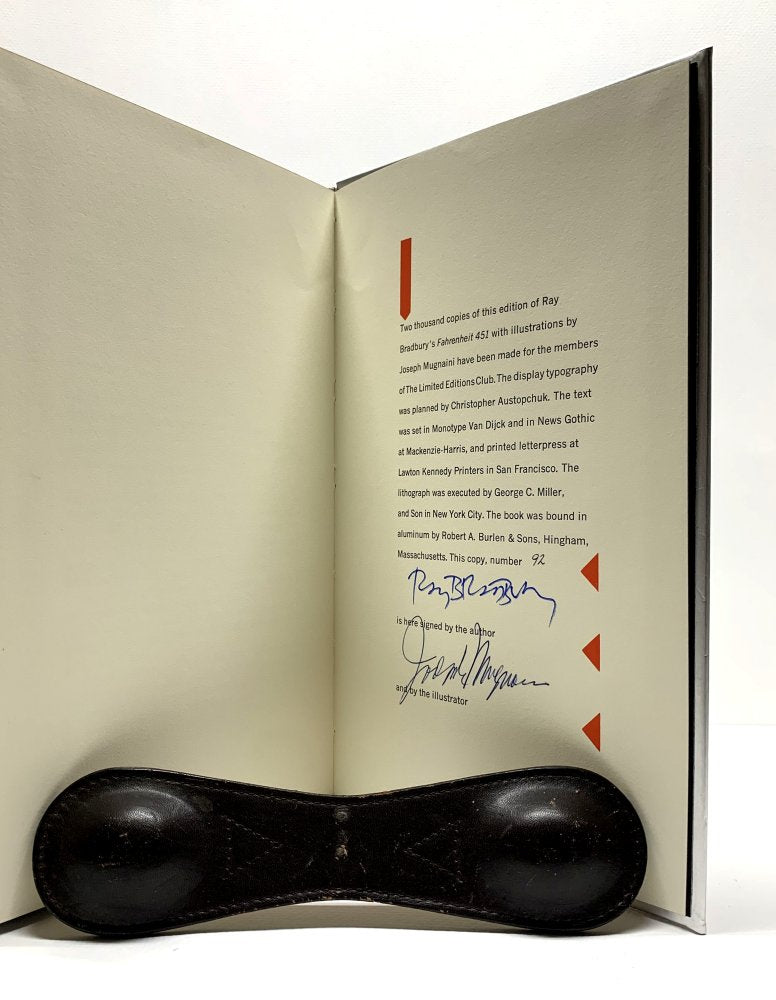 Two thousand copies of this edition of Ray
Bradbury's Fahrenheit 451 with illustrations by
Joseph Mugnaini have been made for the members
of The Limited Editions Club. The display typography
was planned by Christopher Austopchuk. The text
was set in Monotype Van Dijck and in News Gothic
at Mackenzie-Harris, and printed letterpress at
Lawton Kennedy Printers in San Francisco. The
lithograph was executed by George C. Miller,
and Son in New York City. The book was bound in
aluminum by Robert A. Burlen & Sons, Hingham,
Massachusetts. This copy, number 92
Ray Bradbury
is here signed by the author
Joseph Mugnaini
and by the illustrator